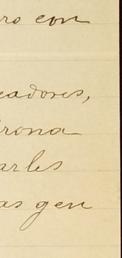 ro con
eadores,
rona
arles
as gen